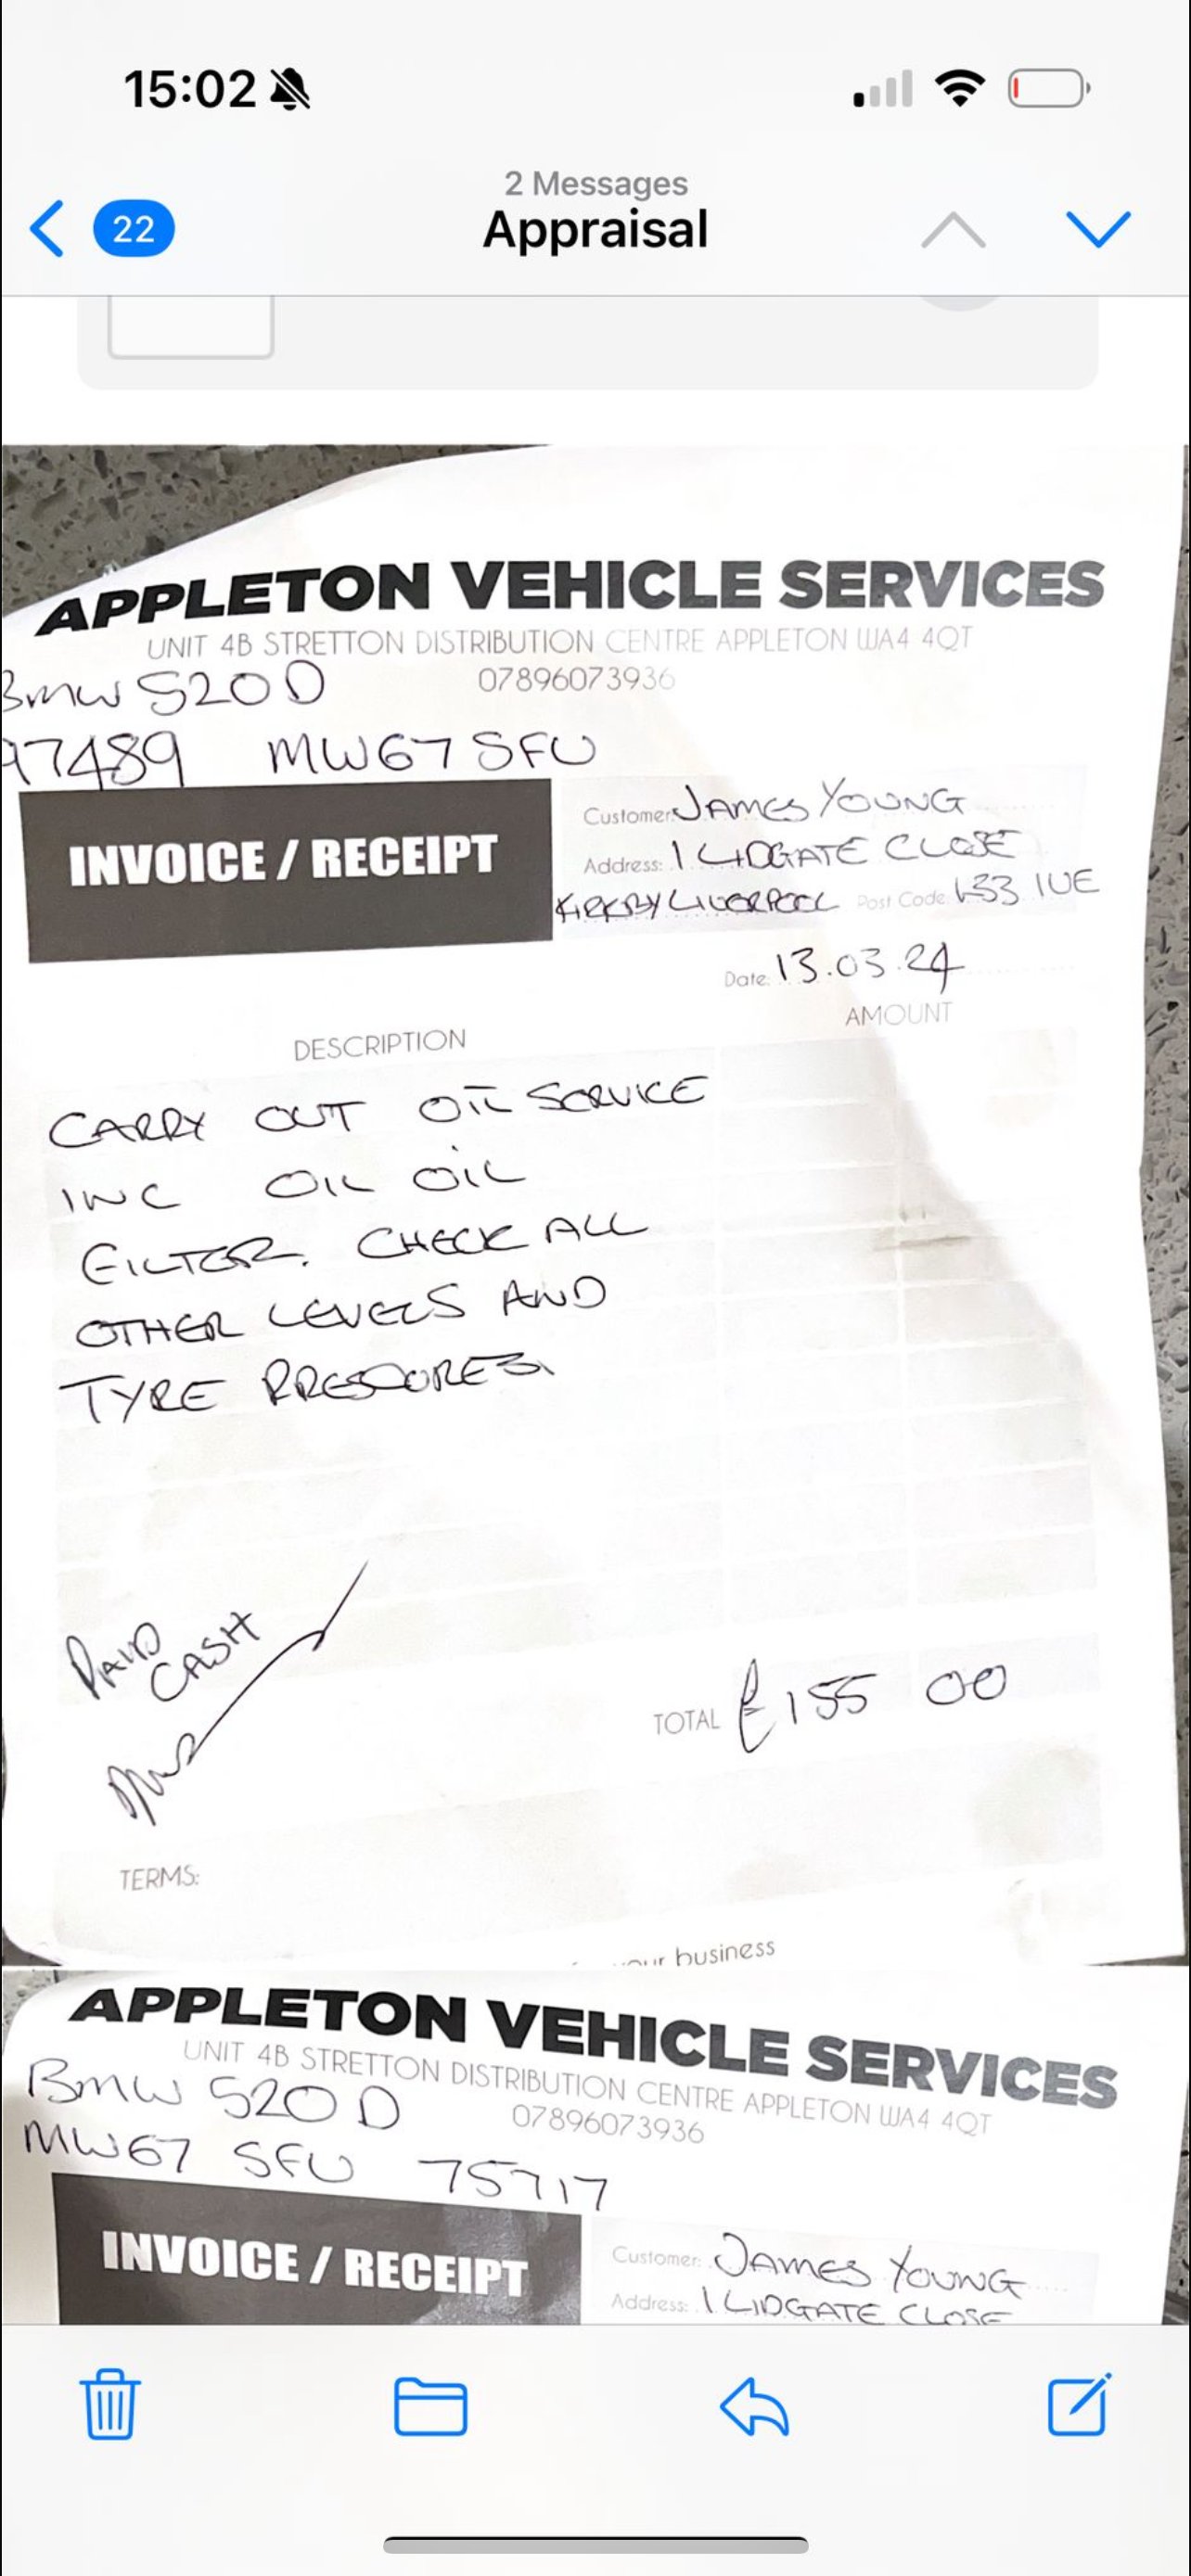 15:02
2 Messages
22
Appraisal
APPLETON VEHICLE SERVICES
UNIT 4B STRETTON DISTRIBUTION CENTRE APPLETON WA4 4QT
07896073936
BMW 520D
97489 MW67 SFU
INVOICE / RECEIPT
Customer: JAMES YOUNG
Address: 1 LIDGATE CLOSE
KIRKBY LIVERPOOL Post Code: L33 1UE
Date: 13.03.24
DESCRIPTION
AMOUNT
CARRY OUT OIL SERVICE
INC OIL OIL
FILTER. CHECK ALL
OTHER LEVELS AND
TYRE PRESSURES.
PAID
CASH
TOTAL £155 00
TERMS:
your business
APPLETON VEHICLE SERVICES
UNIT 4B STRETTON DISTRIBUTION CENTRE APPLETON WA4 4QT
07896073936
BMW 520D
MW67 SFU 75717
INVOICE / RECEIPT
Customer: JAMES YOUNG
Address: 1 LIDGATE CLOSE